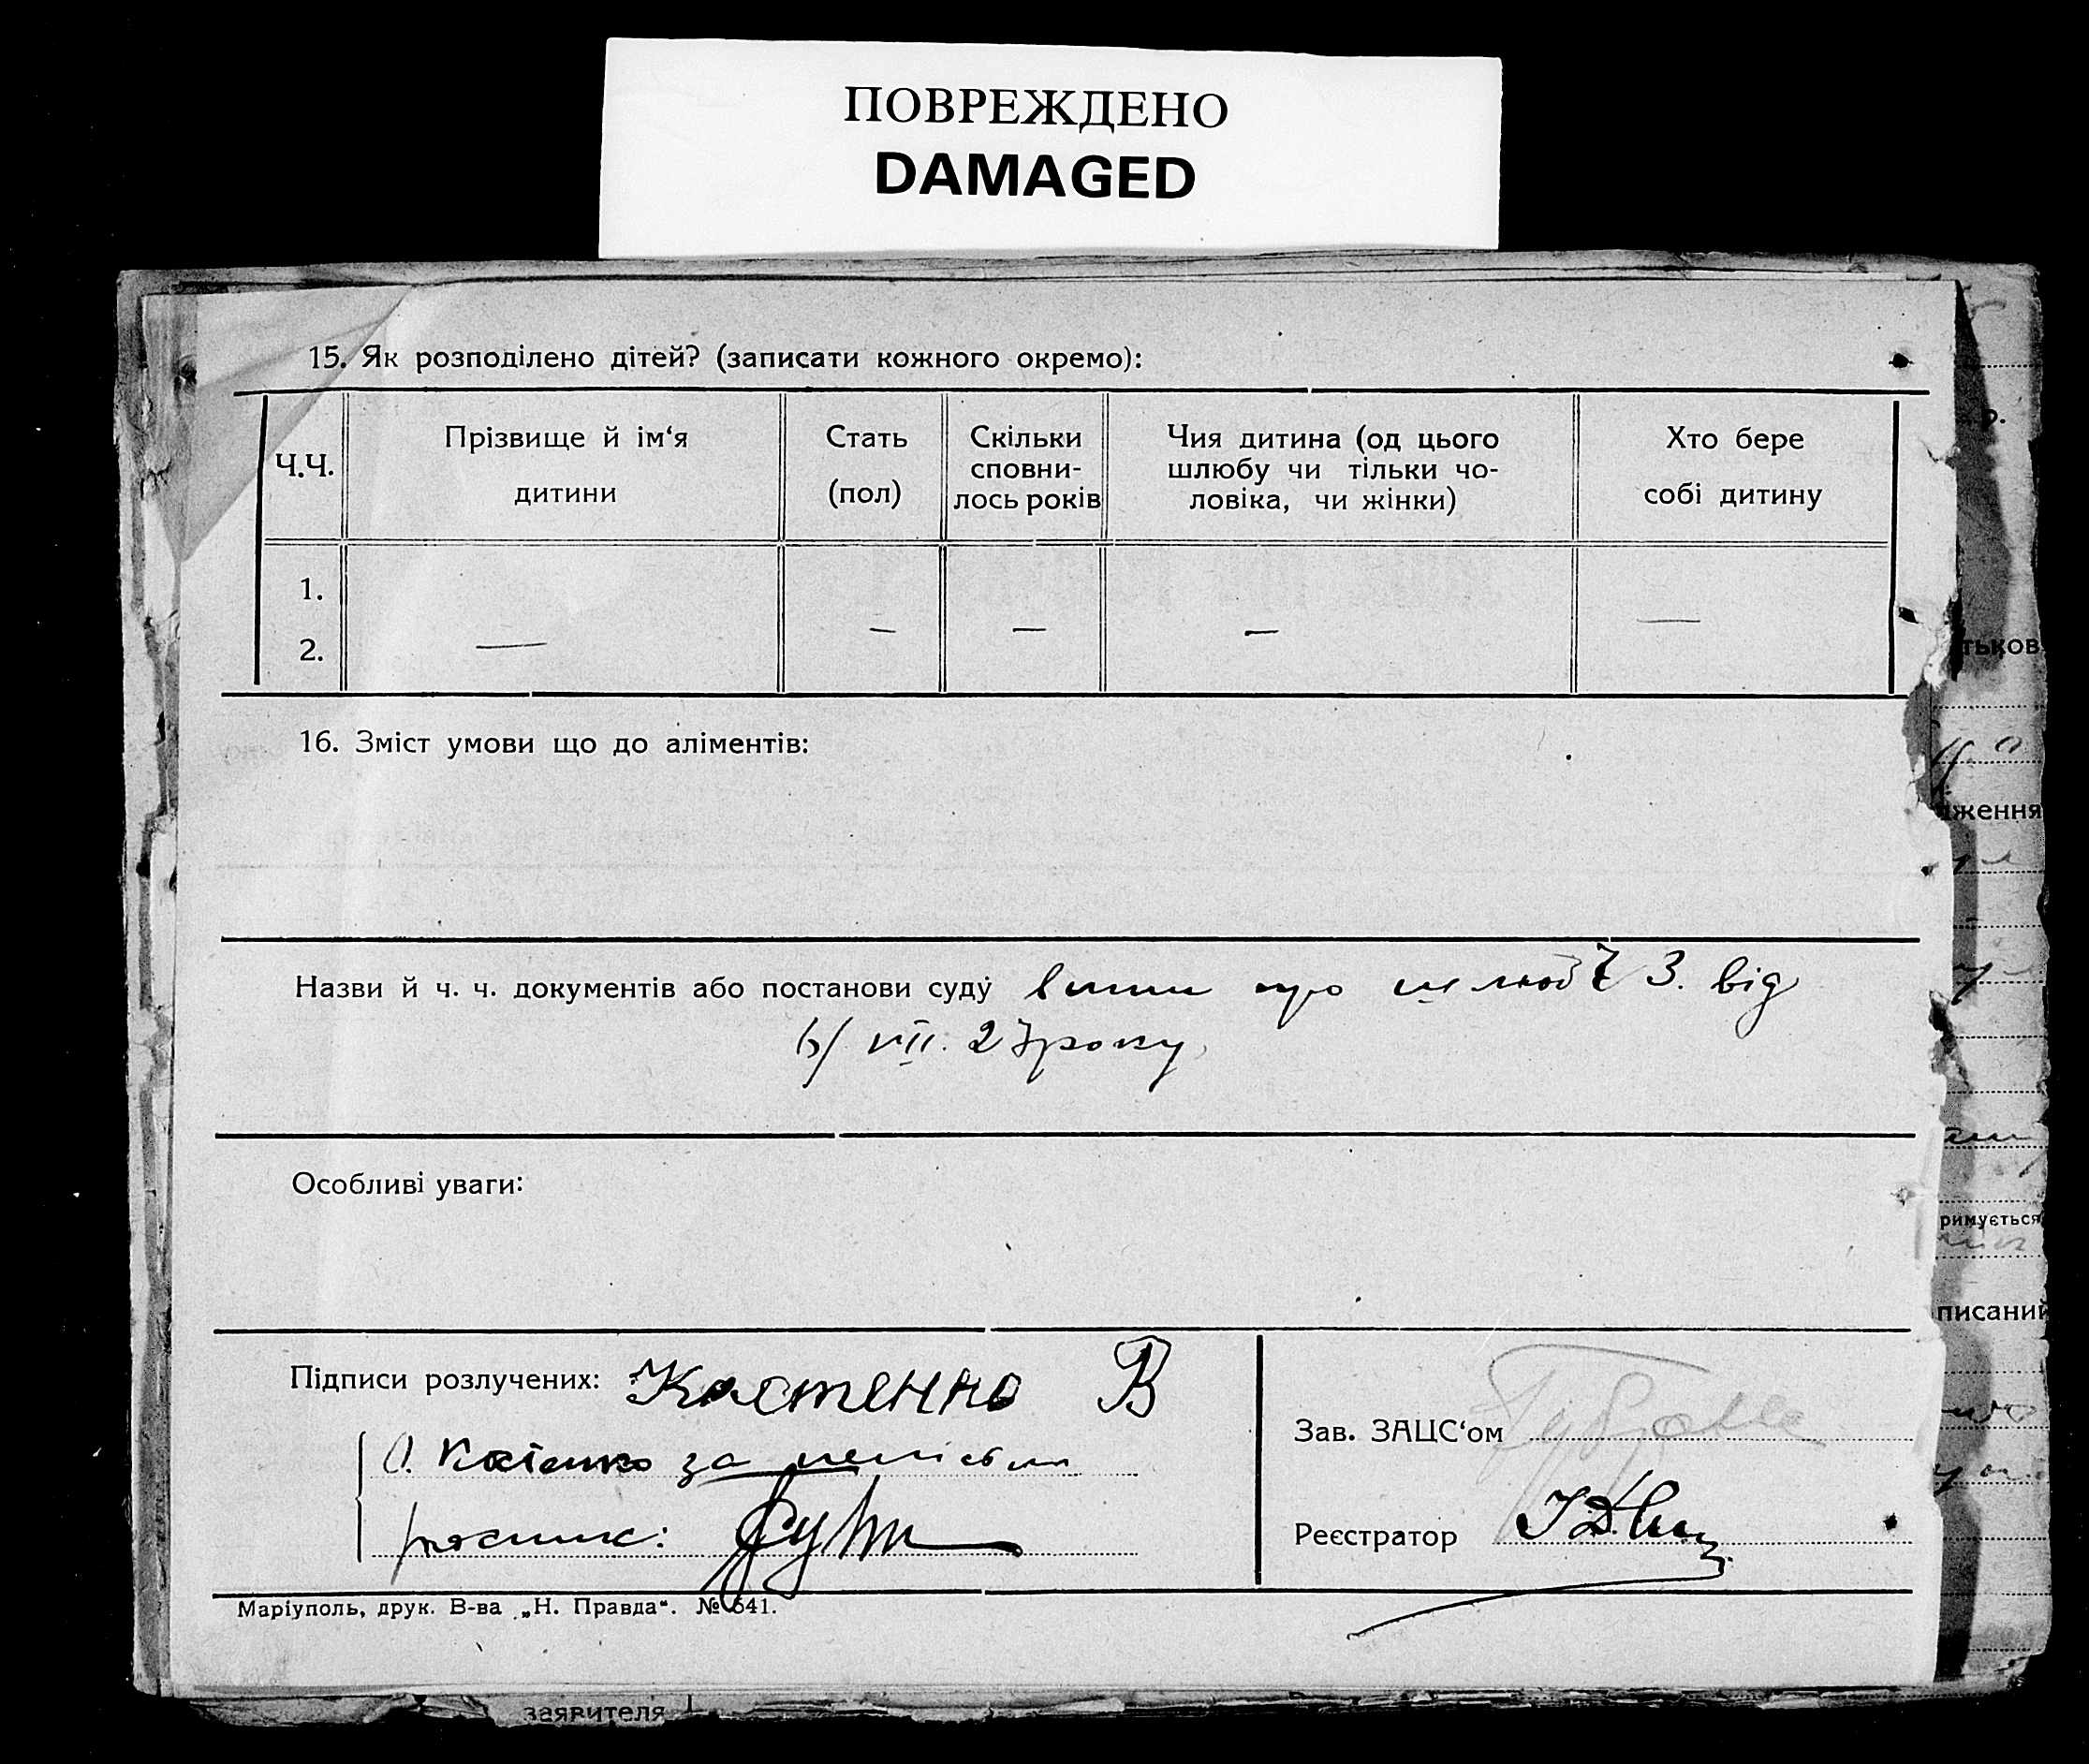 ПОВРЕЖДЕНО
DAMAGED
15. Як розподілено дітей? (записати кожного окремо):
Ч.Ч.
Прізвище й ім‘я
дитини
Стать
(пол)
Скільки
сповни-
лось років
Чия дитина (од цього
шлюбу чи тільки чо-
ловіка, чи жінки)
Хто бере
собі дитину
1.
2.
— — — — —
16. Зміст умови що до аліментів:
Назви й ч. ч. документів або постанови суду про шлюб 3. від
VII. 27 року
Особливі уваги:
Підписи розлучених: Костенко В
за
Зав. ЗАЦС‘ом
Реєстратор
Маріуполь, друк. В-ва „Н. Правда“. № 641.
заявителя
тьков
ження
римується
писаний